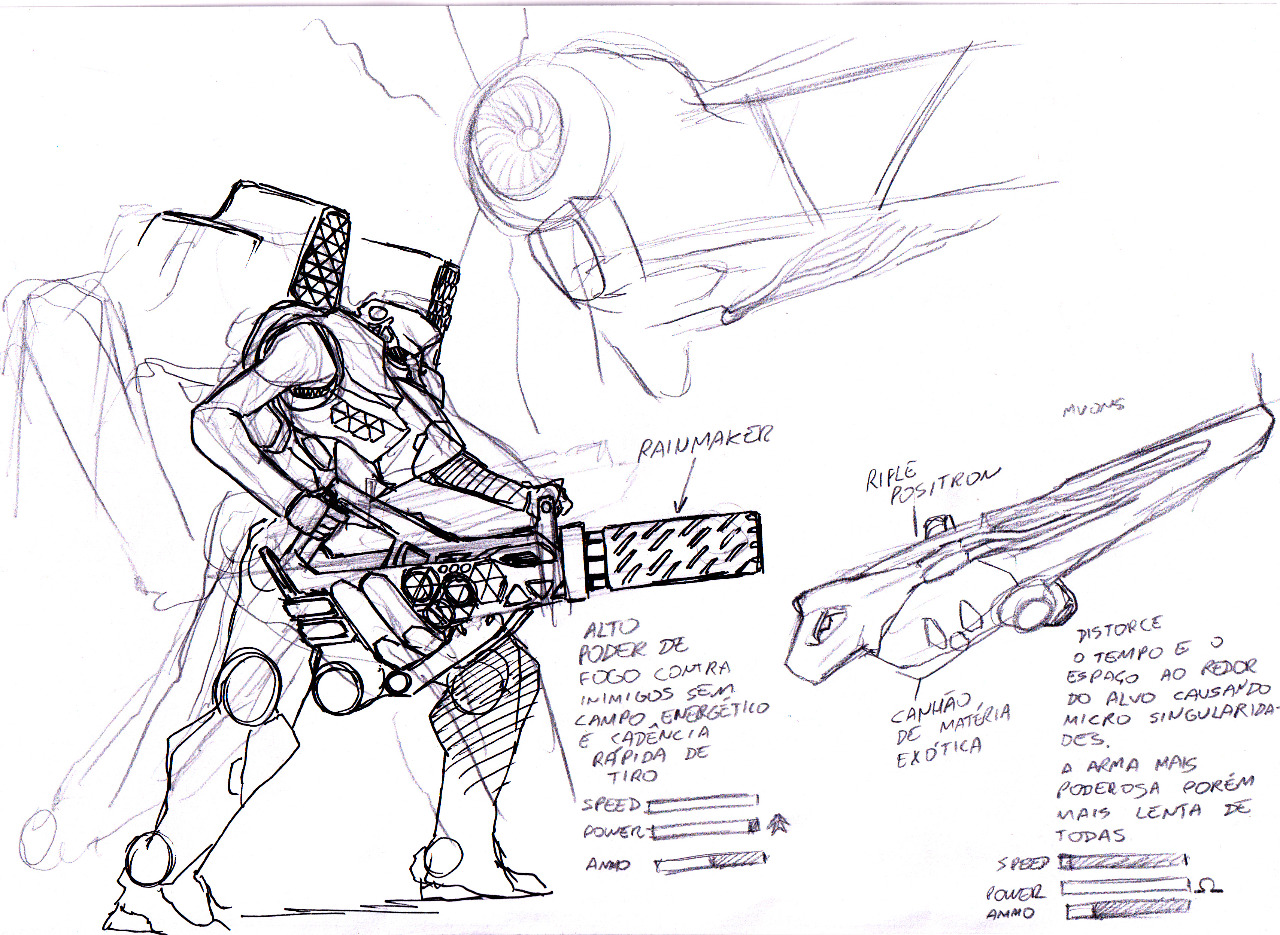 RAINMAKER
ALTO
PODER DE
FOGO CONTRA
INIMIGOS SEM
CAMPO ENERGÉTICO
E CADÊNCIA
RÁPIDA DE
TIRO
SPEED
POWER
AMMO
MUONS
RIFLE
POSITRON
CANHÃO
DE MATÉRIA
EXÓTICA
DISTORCE
O TEMPO E O
ESPAÇO AO REDOR
DO ALVO CAUSANDO
MICRO SINGULARIDA-
DES.
A ARMA MAIS
PODEROSA PORÉM
MAIS LENTA DE
TODAS
SPEED
POWER Ω
AMMO